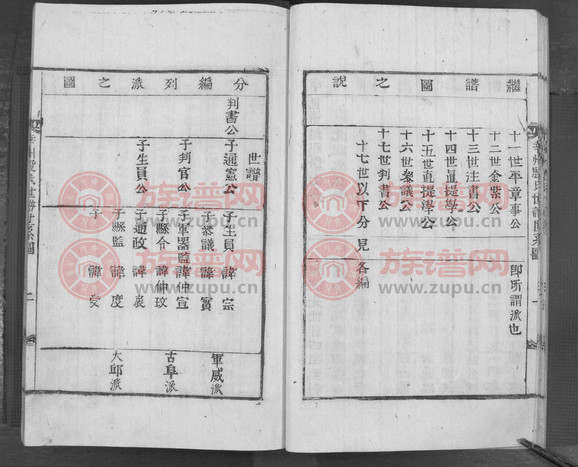 繼譜圖之説
十一世平章事公 即所謂派也
十二世金紫公
十三世注書公
十四世直提學公
十五世直提學公
十六世叅議公
十七世判書公
十七世以下分見各編
一
分編列派之圖
世譜
判書公
子通憲公
子判官公
子生員公
子生員 諱宗
子叅議 諱賓
子軍器監 諱仲宣
子縣令 諱仲玟
子通政 諱
子縣監 諱度
子 諱
軍威派
古阜派
大邱派
二
族谱网
www.zupu.cn
族谱网
www.zupu.cn
族谱网
www.zupu.cn
族谱网
www.zupu.cn